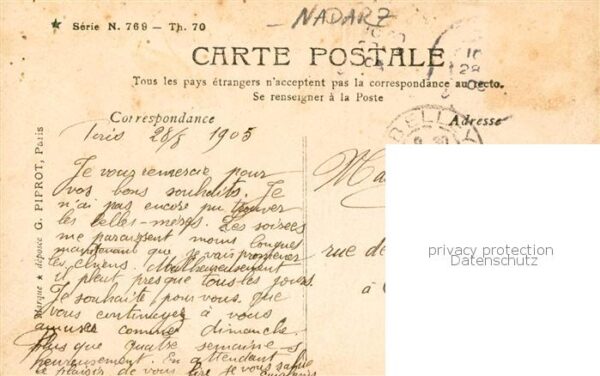 NADARZ
★ Série N. 769 — Th. 70
CARTE POSTALE
Tous les pays étrangers n'acceptent pas la correspondance au recto.
Se renseigner à la Poste
Correspondance
Adresse
BELLEY
Marque ★ déposée G. PIPROT, Paris
Paris 28/8 1905
Je vous remercie pour
vos bons souhaits. Je
n'ai pas encore pu trouver
les belles-mères. Les soirées
me paraissent moins longues
maintenant que je vais promener
les chiens. Malheureusement
il pleut presque tous les jours.
Je souhaite pour vous que
vous continuez à vous
amuser comme dimanche.
Plus que quatre semaines
heureusement. En attendant
le plaisir de vous lire je vous salue
Ma
rue de
à
privacy protection
Datenschutz